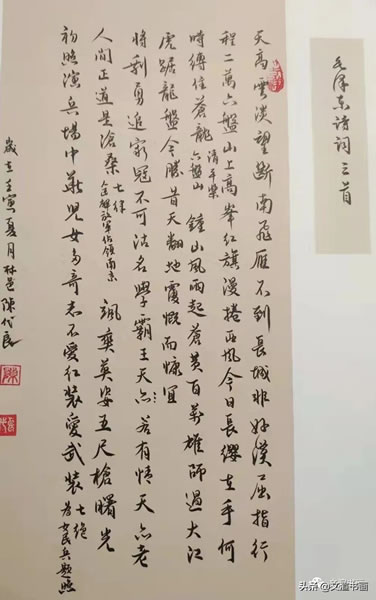 毛泽东诗词三首
天高雲淡望斷南飛雁不到長城非好漢屈指行
程二萬六盤山上高峯红旗漫捲西風今日長纓在手何
時縛住蒼龍 清平樂 六盤山 鐘山風雨起蒼黄百萬雄師過大江
虎踞龍盤今勝昔天翻地覆慨而慷宜
將剩勇追窮寇不可沽名學霸王天亦若有情天亦老
人間正道是滄桑 七律 解放軍佔領南京 颯爽英姿五尺槍曙光
初照演兵場中華兒女多奇志不愛红装愛武装 七绝 为女民兵题照
歲在壬寅夏月林邑陳代民
头条 @文道书画